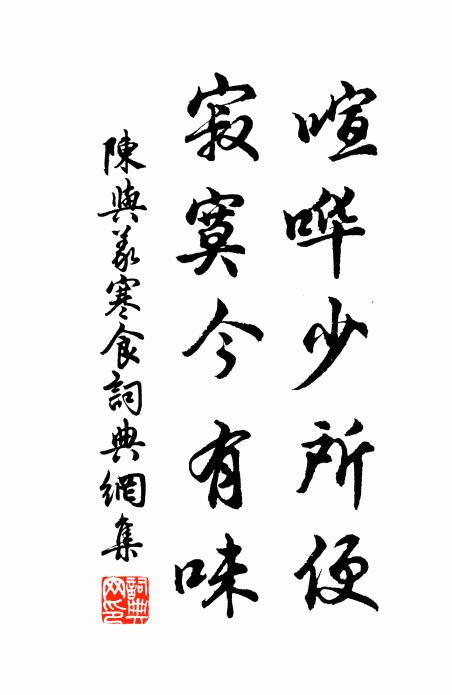 喧哗少所便
寂寞今有味
陳與義寒食詞典網集
詞典網印